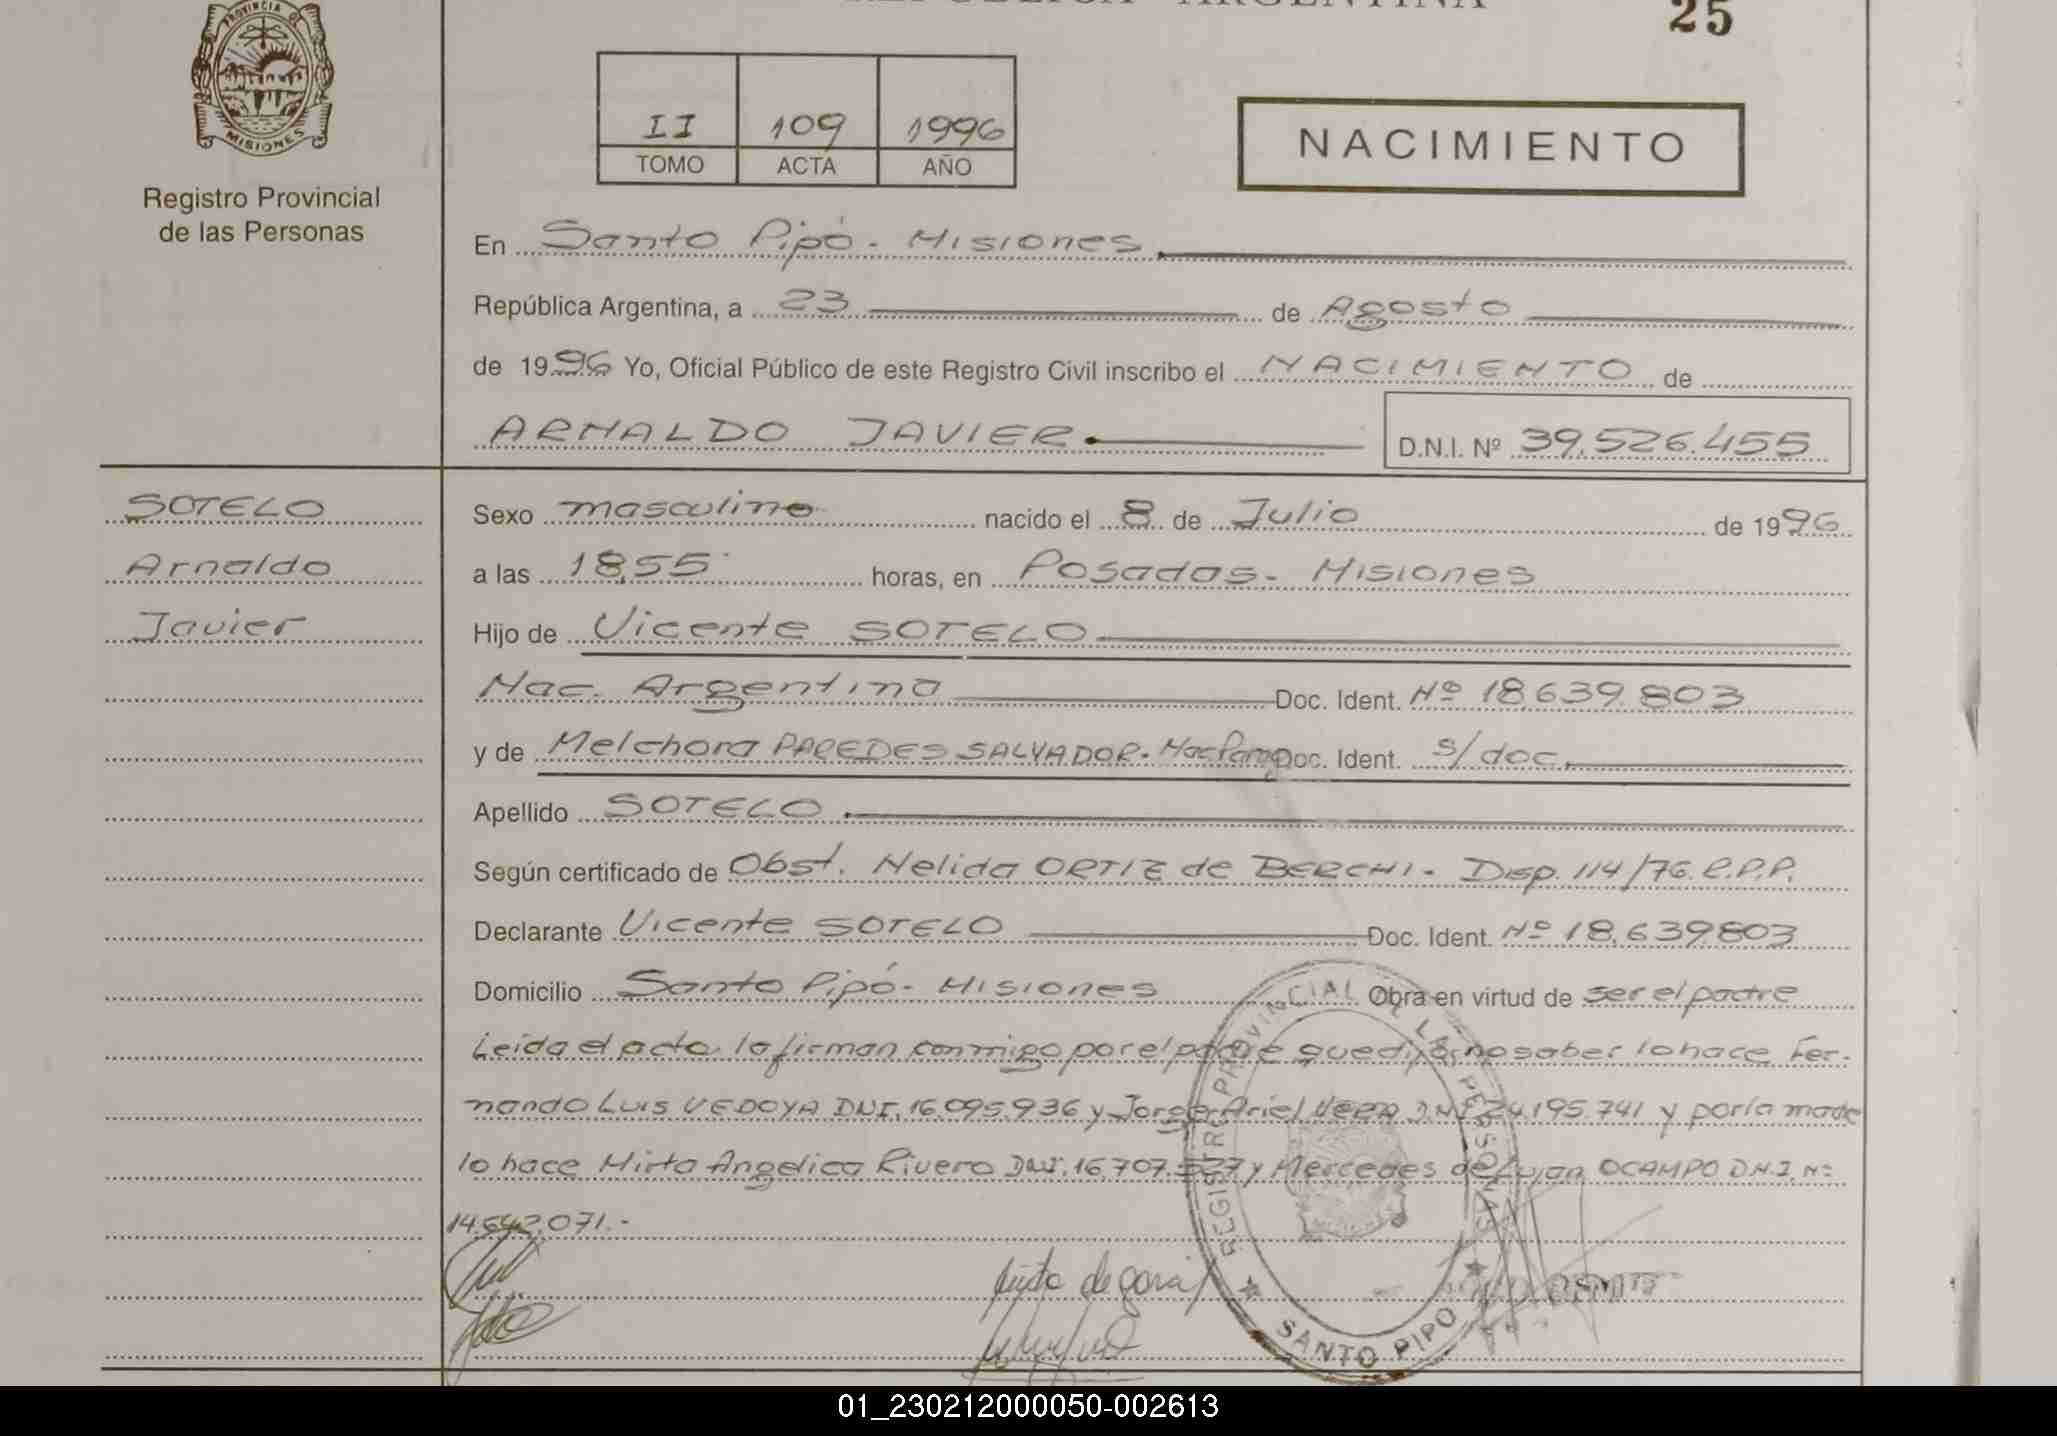 REPUBLICA ARGENTINA
25
PROVINCIA DE
MISIONES
Registro Provincial
de las Personas
II 109 1996
TOMO ACTA AÑO
NACIMIENTO
En Santo Pipó - Misiones
República Argentina, a 23 de Agosto
de 1996 Yo, Oficial Público de este Registro Civil inscribo el NACIMIENTO de
ARNALDO JAVIER
D.N.I. Nº 39.526.455
SOTELO
Arnaldo
Javier
Sexo masculino nacido el 8 de Julio de 1996
a las 18,55 horas, en Posadas - Misiones
Hijo de Vicente SOTELO
Nac. Argentina Doc. Ident. Nº 18.639.803
y de Melchora PAREDES SALVADOR - Nac Parag Doc. Ident. s/doc.
Apellido SOTELO
Según certificado de Obst. Nelida ORTIZ de BERCHI - Disp. 114/76. R.P.P.
Declarante Vicente SOTELO Doc. Ident. Nº 18.639.803
Domicilio Santo Pipó - Misiones Obra en virtud de ser el padre
Leida el acta la firman conmigo por el padre que dijo no saber lo hace Fer-
nando Luis VEDOYA DNI. 16.095.936 y Jorge Ariel VERA D.N.I. 24.195.741 y por la madre
lo hace Mirta Angelica Rivero DNI. 16.707. y Mercedes de Lujan OCAMPO D.N.I. Nº
14.642.071.-
REGISTRO PROVINCIAL DE LAS PERSONAS
SANTO PIPO
01_230212000050-002613